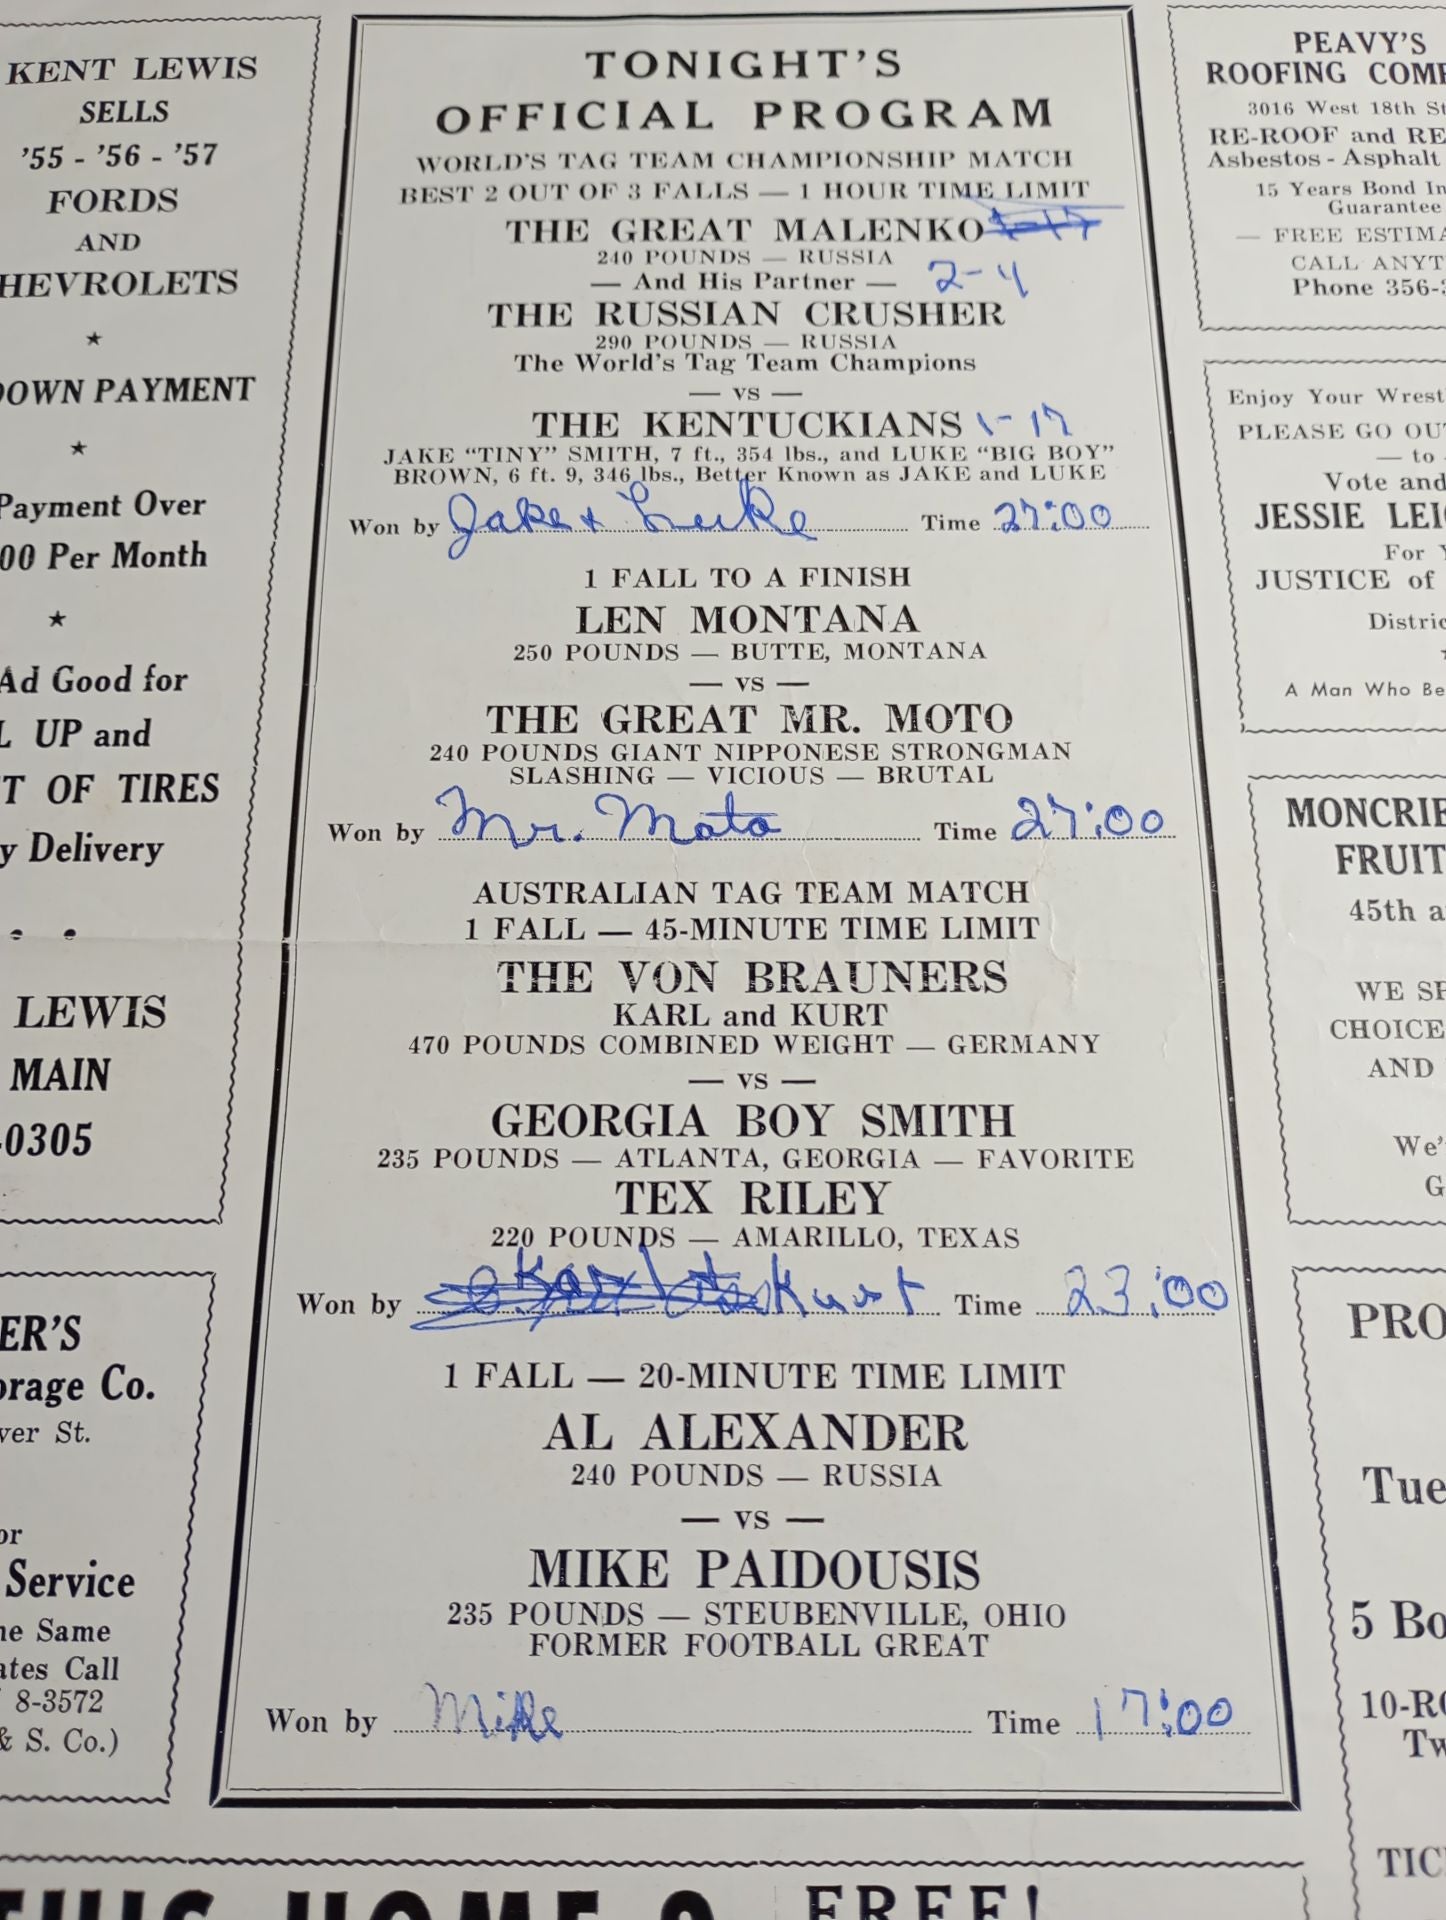 KENT LEWIS
SELLS
'55 - '56 - '57
FORDS
AND
HEVROLETS
★
DOWN PAYMENT
★
Payment Over
00 Per Month
★
Ad Good for
L UP and
T OF TIRES
y Delivery
LEWIS
MAIN
-0305
ER'S
orage Co.
ver St.
or
Service
ne Same
ates Call
8-3572
& S. Co.)
TONIGHT'S
OFFICIAL PROGRAM
WORLD'S TAG TEAM CHAMPIONSHIP MATCH
BEST 2 OUT OF 3 FALLS — 1 HOUR TIME LIMIT
THE GREAT MALENKO 1-17
240 POUNDS — RUSSIA
— And His Partner — 2-4
THE RUSSIAN CRUSHER
290 POUNDS — RUSSIA
The World's Tag Team Champions
— VS —
THE KENTUCKIANS 1-17
JAKE "TINY" SMITH, 7 ft., 354 lbs., and LUKE "BIG BOY"
BROWN, 6 ft. 9, 346 lbs., Better Known as JAKE and LUKE
Won by Jake + Luke Time 27:00
1 FALL TO A FINISH
LEN MONTANA
250 POUNDS — BUTTE, MONTANA
— VS —
THE GREAT MR. MOTO
240 POUNDS GIANT NIPPONESE STRONGMAN
SLASHING — VICIOUS — BRUTAL
Won by Mr. Moto Time 27:00
AUSTRALIAN TAG TEAM MATCH
1 FALL — 45-MINUTE TIME LIMIT
THE VON BRAUNERS
KARL and KURT
470 POUNDS COMBINED WEIGHT — GERMANY
— VS —
GEORGIA BOY SMITH
235 POUNDS — ATLANTA, GEORGIA — FAVORITE
TEX RILEY
220 POUNDS — AMARILLO, TEXAS
Won by Karl Kurt Time 23:00
1 FALL — 20-MINUTE TIME LIMIT
AL ALEXANDER
240 POUNDS — RUSSIA
— VS —
MIKE PAIDOUSIS
235 POUNDS — STEUBENVILLE, OHIO
FORMER FOOTBALL GREAT
Won by Mike Time 17:00
PEAVY'S
ROOFING COMP
3016 West 18th St
RE-ROOF and RE
Asbestos - Asphalt
15 Years Bond In
Guarantee
— FREE ESTIMA
CALL ANYT
Phone 356-3
Enjoy Your Wrest
PLEASE GO OU
— to
Vote and
JESSIE LEI
For
JUSTICE of
Distric
A Man Who Be
MONCRIE
FRUIT
45th a
WE SP
CHOICE
AND
We'
G
PRO
Tue
5 Bo
10-RO
Tw
TIC
THIS HOME ?
FREE!